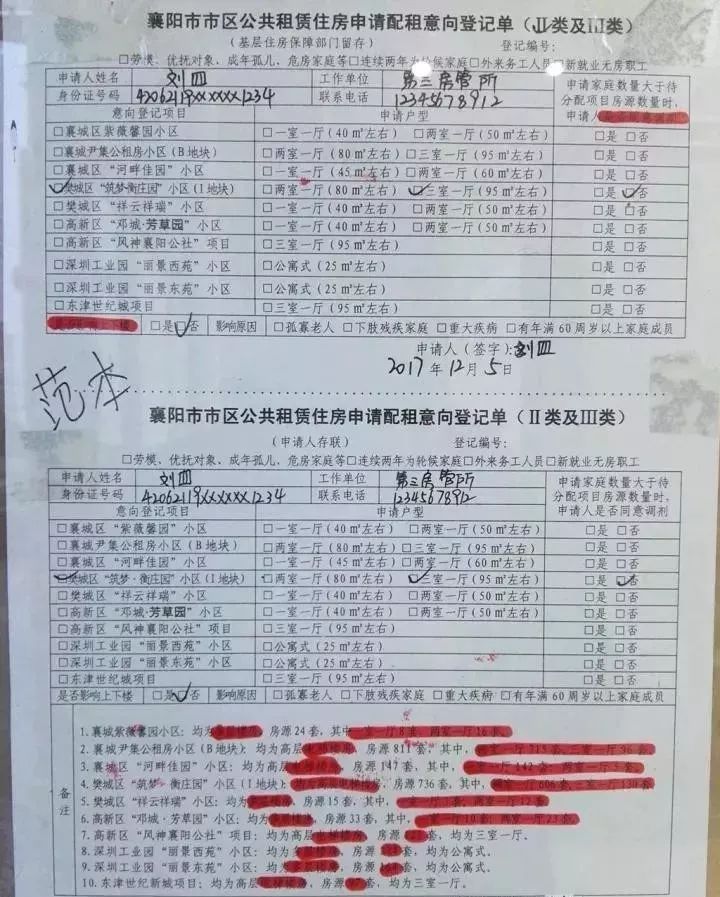 襄阳市市区公共租赁住房申请配租意向登记单（II类及III类）
（基层住房保障部门留存） 登记编号：
□劳模、优抚对象、成年孤儿、危房家庭等□连续两年为轮候家庭□外来务工人员□新就业无房职工
申请人姓名 刘四 工作单位 第三房管所 申请家庭数量大于待
身份证号码 42062119xxxxxx1234 联系电话 12345678912 分配项目房源数量时，
意向登记项目 申请户型 申请人是否同意调剂
□襄城区紫薇馨园小区 □一室一厅(40㎡左右) □两室一厅(50㎡左右) □是 □否
□襄城尹集公租房小区(B地块) □两室一厅(80㎡左右)□三室一厅(95㎡左右) □是 □否
□襄城区“河畔佳园”小区 □一室一厅(45㎡左右)□两室一厅(60㎡左右) □是 □否
☑樊城区“筑梦·衡庄园”小区(I地块) □两室一厅(80㎡左右) ☑三室一厅(95㎡左右) □是 ☑否
□樊城区“祥云祥瑞”小区 □一室一厅(40㎡左右)□两室一厅(50㎡左右) □是 □否
□高新区“邓城·芳草园”小区 □一室一厅(40㎡左右)□两室一厅(50㎡左右) □是 □否
□高新区“风神襄阳公社”项目 □三室一厅(95㎡左右) □是 □否
□深圳工业园“丽景西苑”小区 □公寓式(25㎡左右) □是 □否
□深圳工业园“丽景东苑”小区 □公寓式(25㎡左右) □是 □否
□东津世纪城项目 □三室一厅(95㎡左右) □是 □否
是否影响上下楼 □是☑否 影响原因 □孤寡老人 □下肢残疾家庭 □重大疾病 □有年满60周岁以上家庭成员
申请人（签字）：刘四
2017年12月5日
范本
襄阳市市区公共租赁住房申请配租意向登记单（II类及III类）
（申请人存联） 登记编号：
□劳模、优抚对象、成年孤儿、危房家庭等□连续两年为轮候家庭□外来务工人员□新就业无房职工
申请人姓名 刘四 工作单位 第三房管所 申请家庭数量大于待
身份证号码 42062119xxxxxx1234 联系电话 12345678912 分配项目房源数量时，
意向登记项目 申请户型 申请人是否同意调剂
□襄城区“紫薇馨园”小区 □一室一厅(40㎡左右) □两室一厅(50㎡左右) □是 □否
□襄城尹集公租房小区(B地块) □两室一厅(80㎡左右)□三室一厅(95㎡左右) □是 □否
□襄城区“河畔佳园”小区 □一室一厅(45㎡左右)□两室一厅(60㎡左右) □是 □否
☑樊城区“筑梦·衡庄园”小区(I地块) □两室一厅(80㎡左右) ☑三室一厅(95㎡左右) □是 ☑否
□樊城区“祥云祥瑞”小区 □一室一厅(40㎡左右)□两室一厅(50㎡左右) □是 □否
□高新区“邓城·芳草园”小区 □一室一厅(40㎡左右)□两室一厅(50㎡左右) □是 □否
□高新区“风神襄阳公社”项目 □三室一厅(95㎡左右) □是 □否
□深圳工业园“丽景西苑”小区 □公寓式(25㎡左右) □是 □否
□深圳工业园“丽景东苑”小区 □公寓式(25㎡左右) □是 □否
□东津世纪城项目 □三室一厅(95㎡左右) □是 □否
是否影响上下楼 □是☑否 影响原因 □孤寡老人 □下肢残疾家庭 □重大疾病 □有年满60周岁以上家庭成员
备注
1.襄城紫薇馨园小区：均为多层楼房，房源24套，其中一室一厅8套，两室一厅16套。
2.襄城尹集公租房小区(B地块)：均为高层电梯楼房，房源811套，其中，两室一厅715套，三室一厅96套
3.襄城区“河畔佳园”小区：均为高层电梯楼房，房源147套，其中，一室一厅142套；两室一厅5套
4.樊城区“筑梦·衡庄园”小区(I地块)：均为高层电梯楼房，房源736套，其中，两室一厅606套，三室一厅130套
5.樊城区“祥云祥瑞”小区：均为多层楼房，房源15套，其中，一室一厅3套；两室一厅12套
6.高新区“邓城·芳草园”小区：均为多层楼房，房源33套，其中，一室一厅10套；两室一厅23套
7.高新区“风神襄阳公社”项目：均为高层电梯楼房，房源套，均为三室一厅。
8.深圳工业园“丽景西苑”小区：均为多层楼房，房源套，均为公寓式。
9.深圳工业园“丽景东苑”小区：均为多层楼房，房源套，均为公寓式。
10.东津世纪新城项目：均为高层电梯楼房，房源套，均为三室一厅。